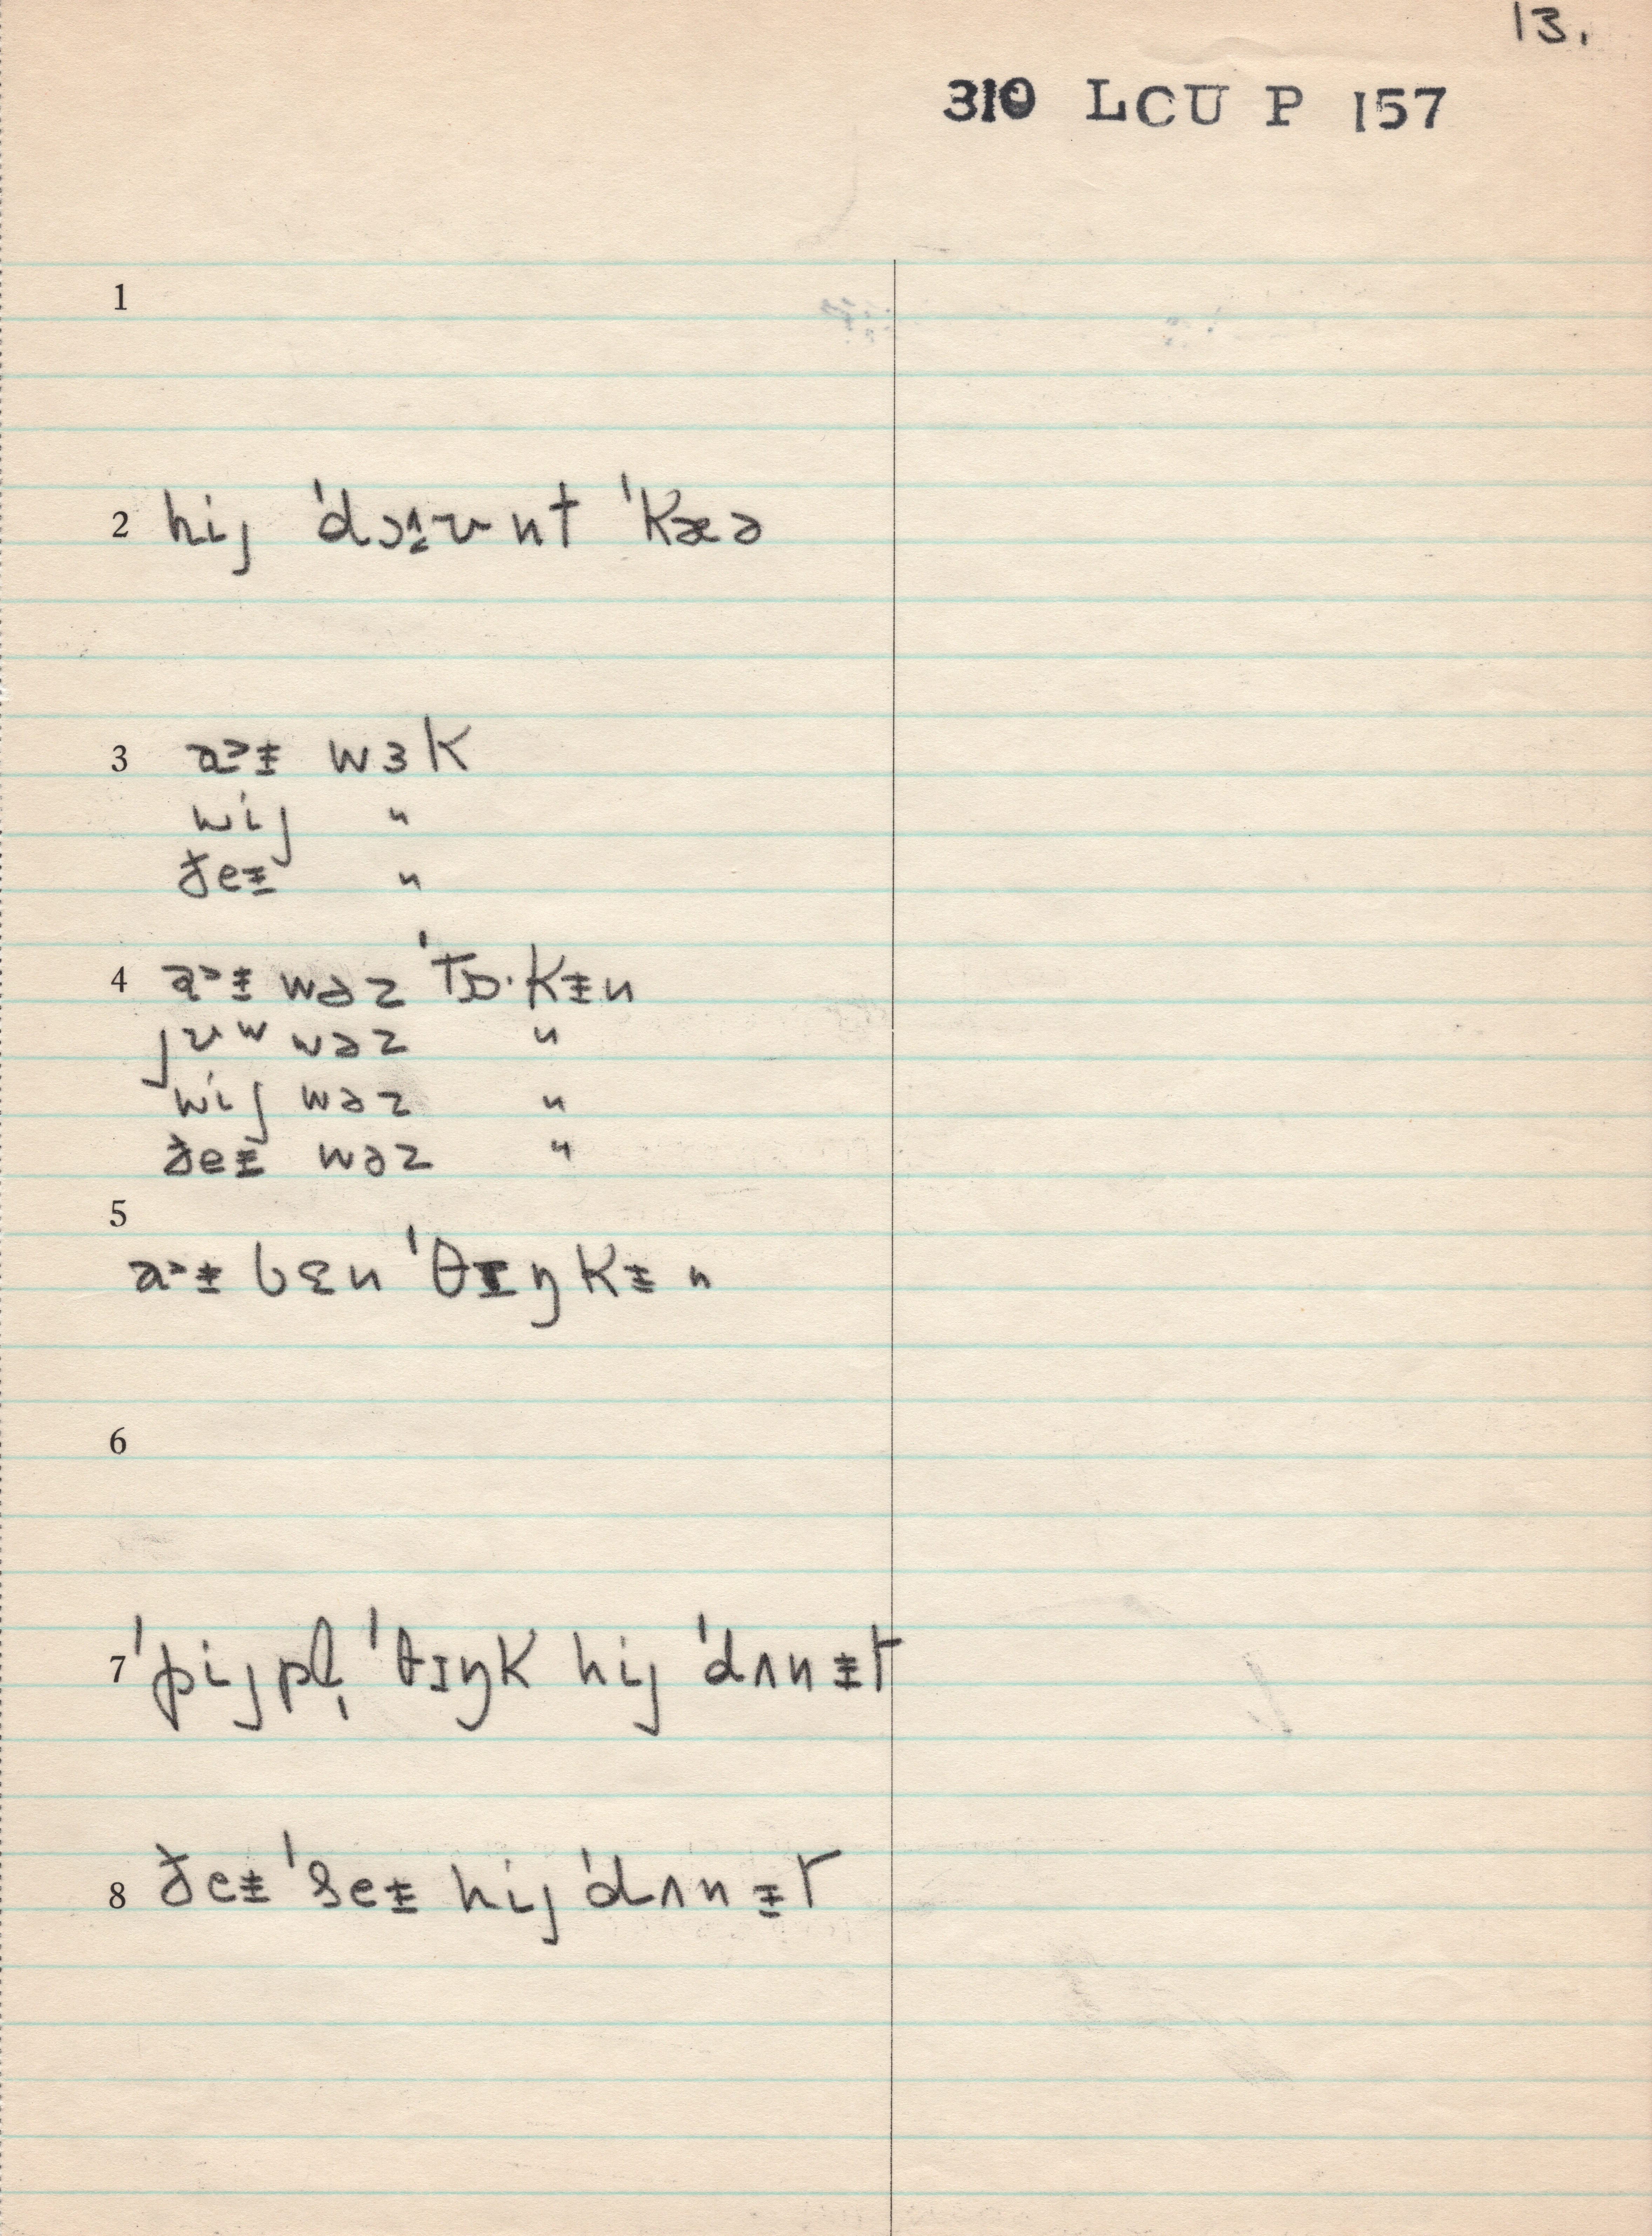 13.
310 LCU P 157
1
2 hij ˈdɔᵻʌnt ˈkæə
3 a˃ᵻ wɜk
wij "
ðeᵻ "
4 a˃ᵻ wəz ˈtɒ·kᵻn
jʊw wəz "
wij wəz "
ðeᵻ wəz "
5
a˃ᵻ bɛn ˈθɪŋkᵻn
6
7 ˈpijpl̩ ˈθɪŋk hij ˈdʌnᵻt
8 ðeᵻ ˈseᵻ hij ˈdʌnᵻt